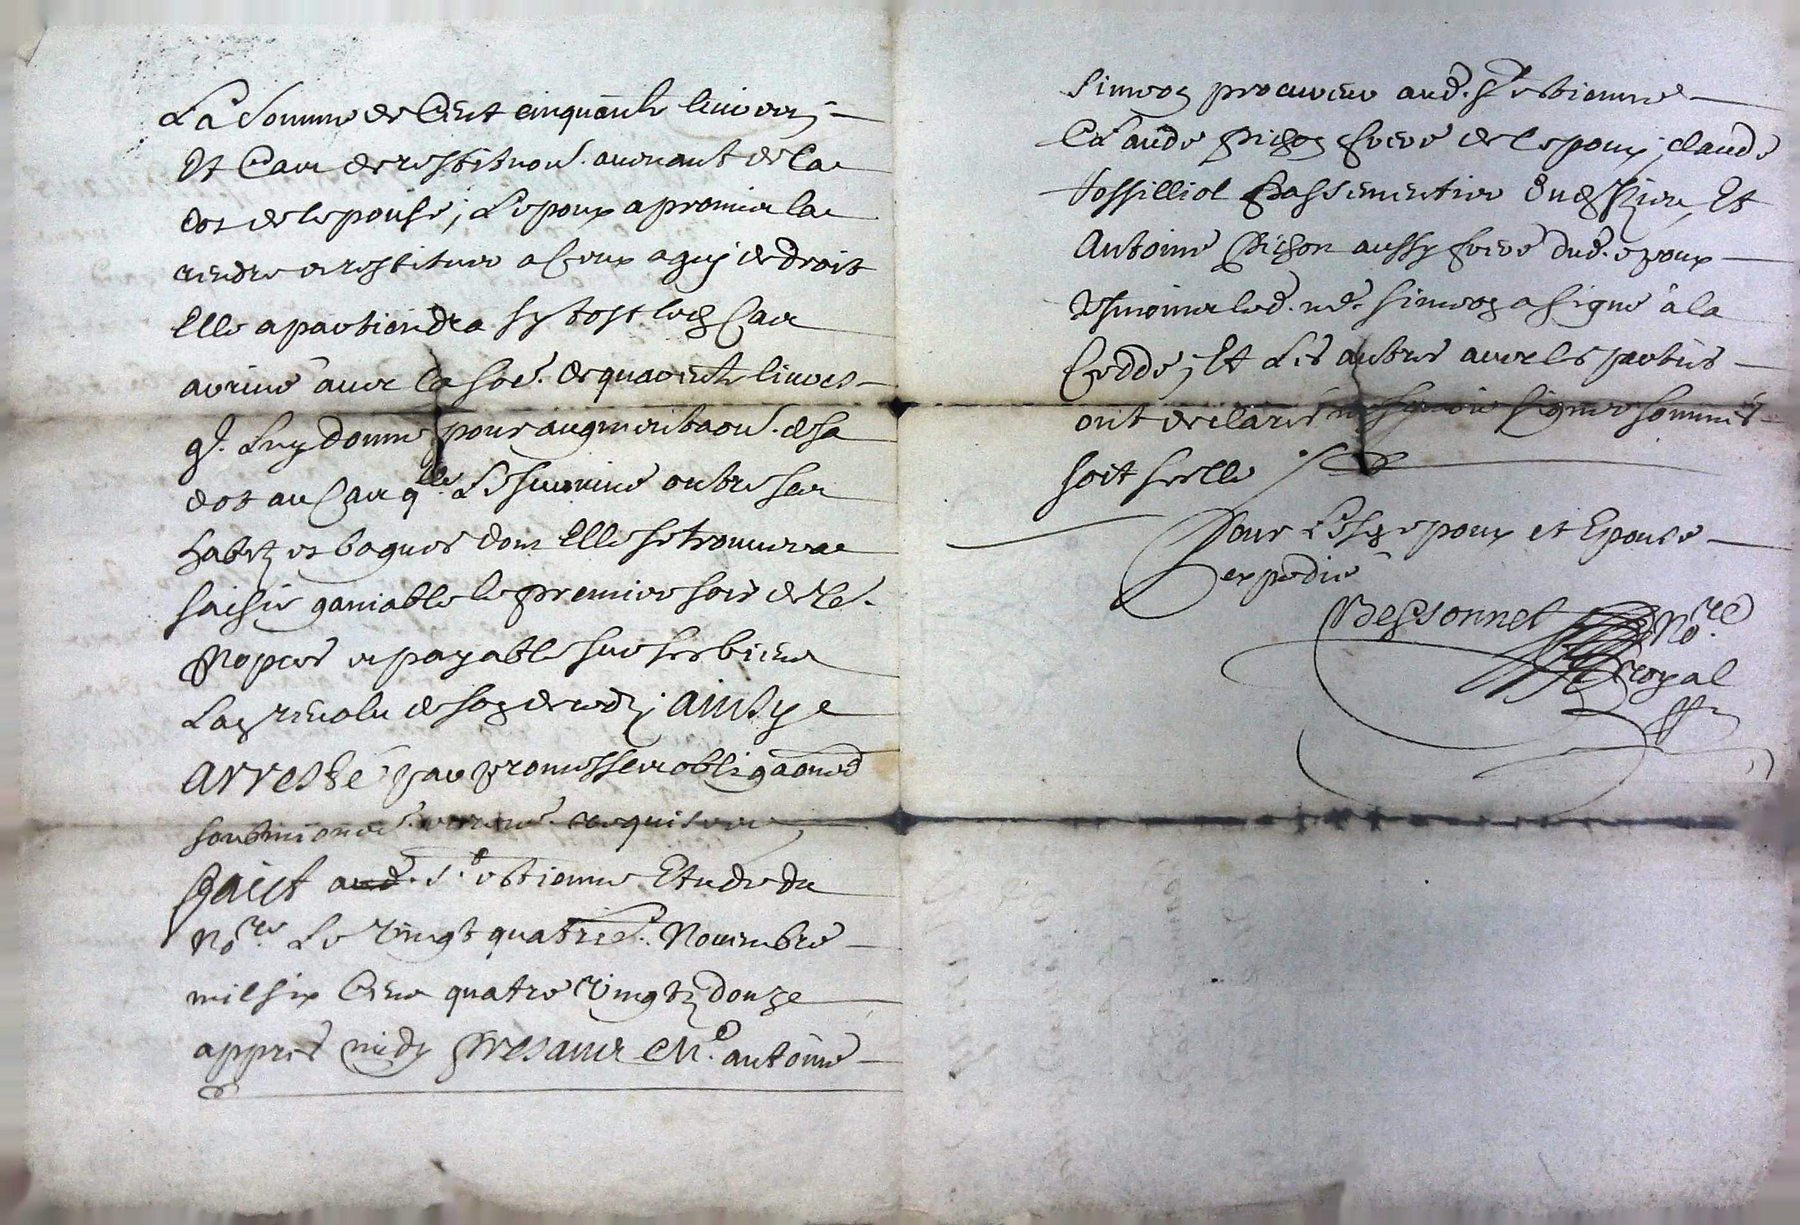 La somme de Cent cinquante livres
Et Cas de restitution avenant de la
dot de lepouse, Lepoux a promis la
rendre et restituer a Ceux a quy de droit
Elle apartiendra sytost led Cas
arrivé avec la soe. de quarente livres
q. Luy donne pour augmentaon. de sa
dot au Cas q.lle Le survive outre ses
habitz et bagues dont Elle se trouverra
saisie ganiable le premier soir de le.
Nopces et payable sur ses biens
Lan revolu de son deceds, ainsy a
arresté par promesse et obligaons
soubmions requises
Faict aud. St. estienne Etude du
No.re Le vingt quatrie. Novembre
mil six Cens quatre vingtz douze
appres midy Presans Me. antoine
Simeon procureur aud. St estienne
Claude Pichon frere de lepoux, claude
fossilliol Passementier dud lieu, Et
Antoine Pichon aussy frere dud. epoux
tesmoins led. me. Simeon a signé a la
Cedde, Et Les autres avec les parties
ont declaré ne scavoir signer sommés
soit scellé
Pour Lesd epoux et Epouse
expedié
Bessonnet No.re
royal